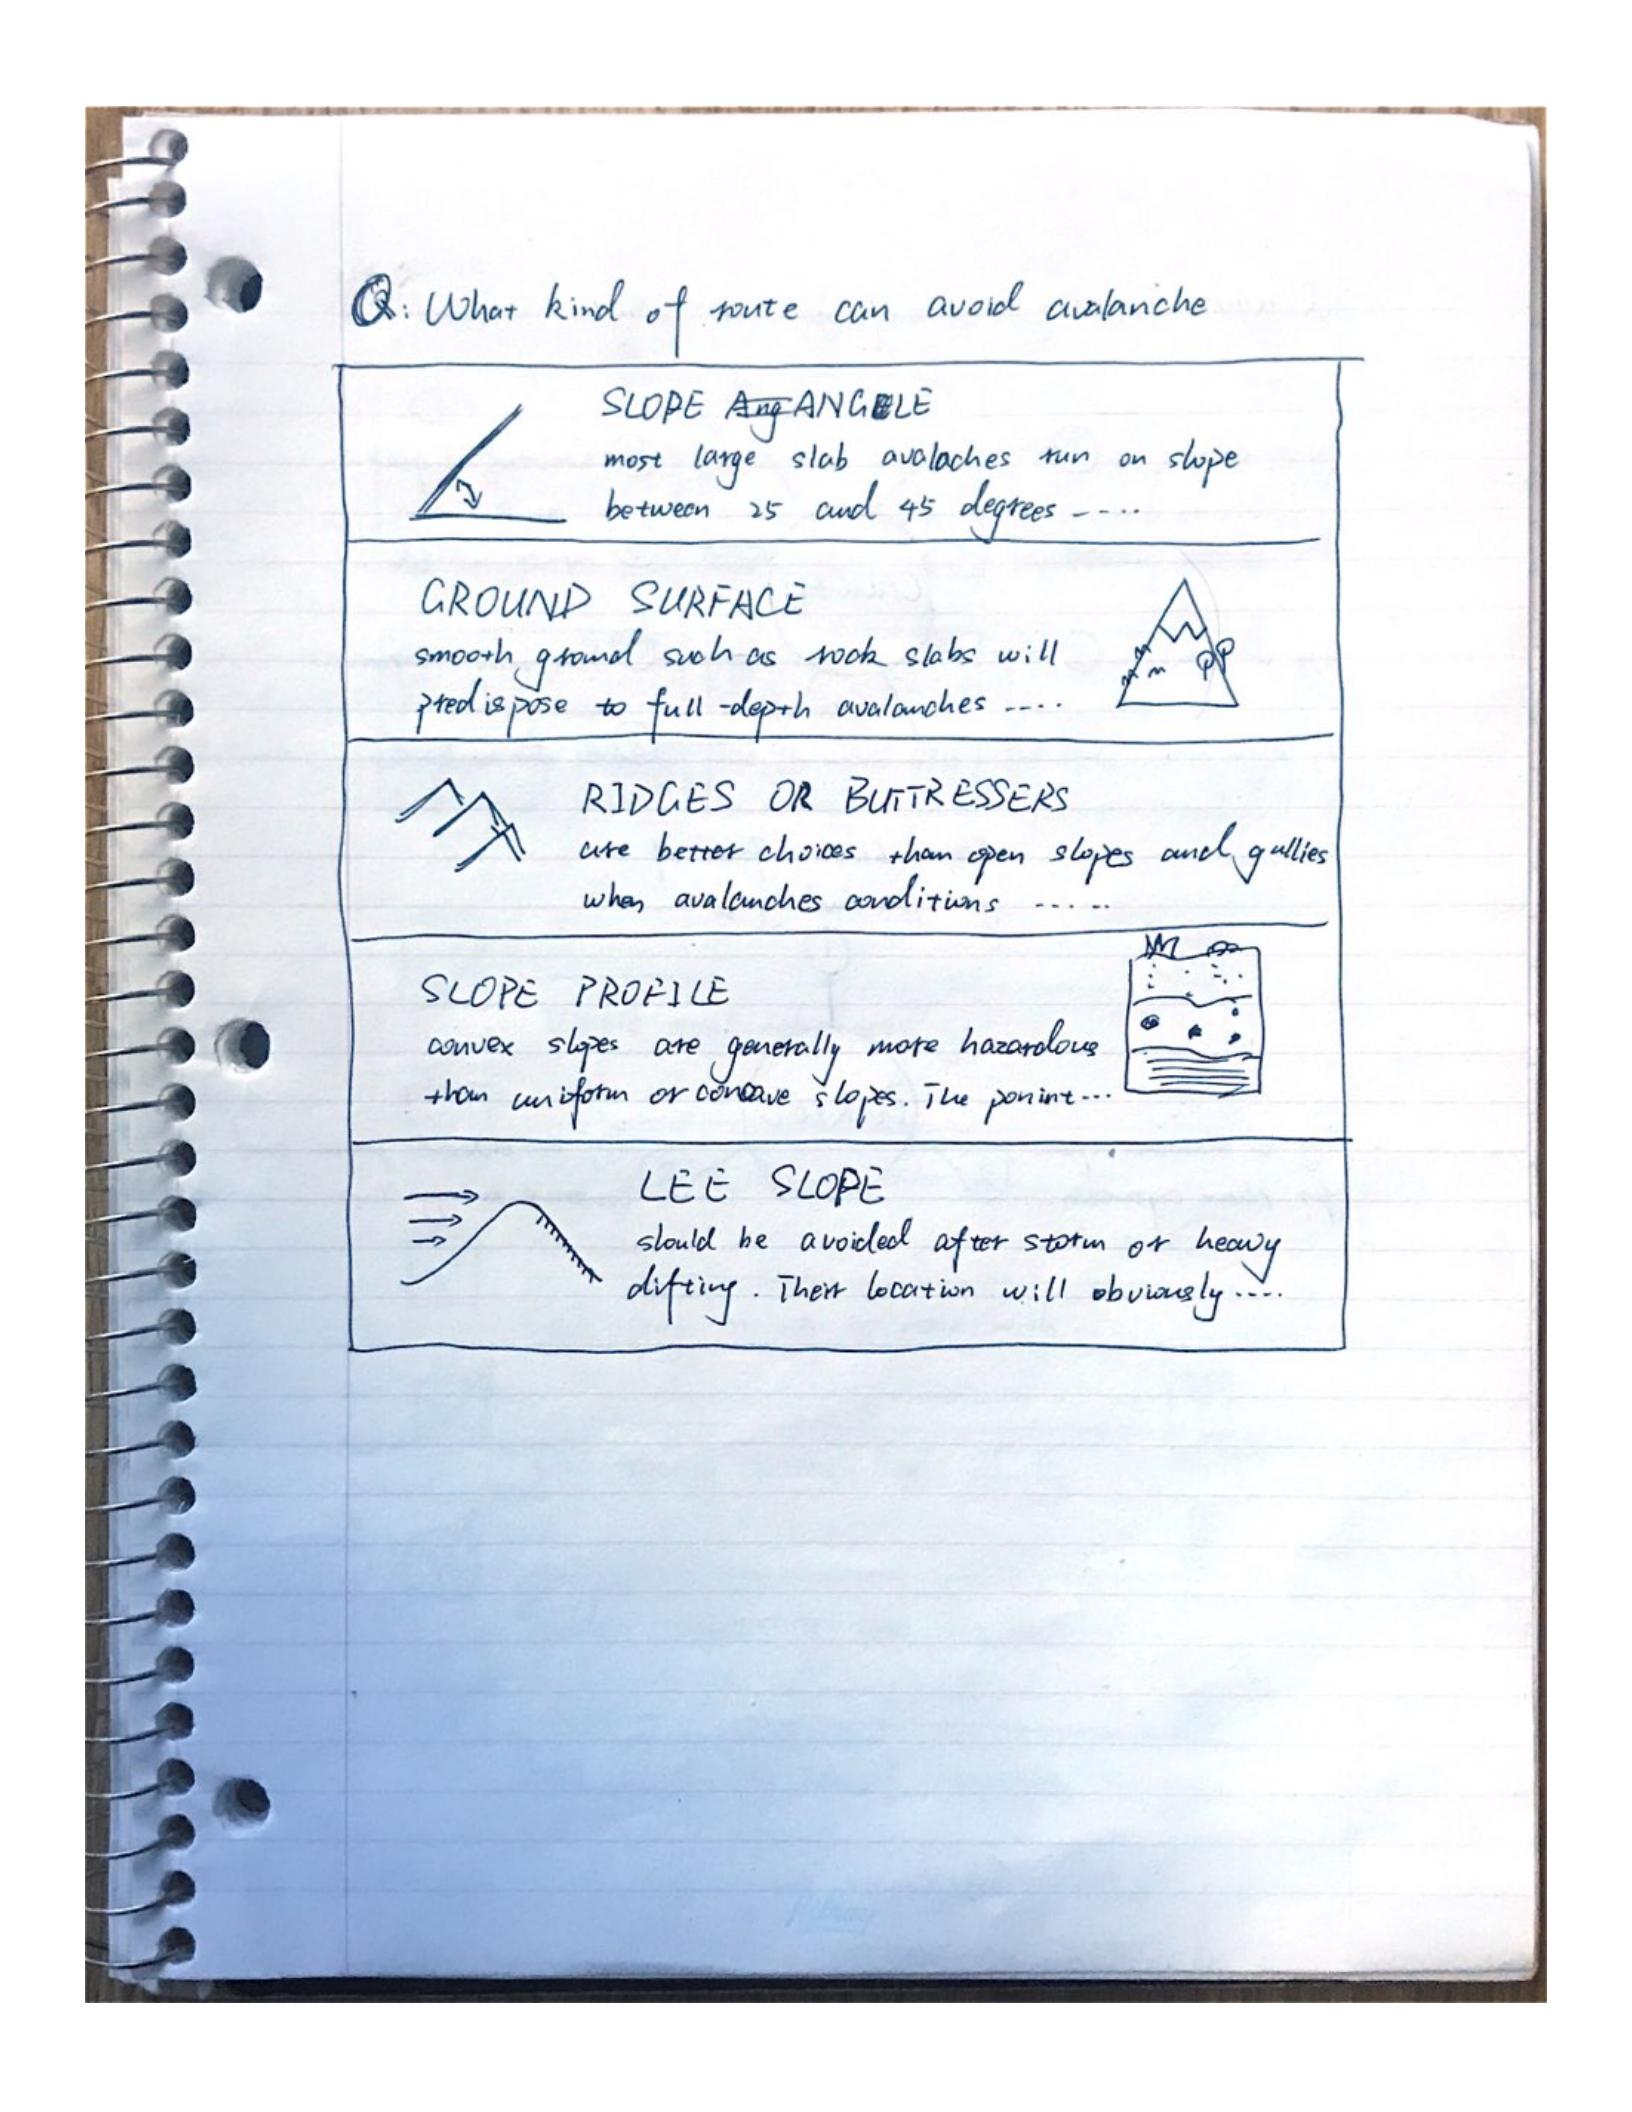 Q: What kind of route can avoid avalanche
SLOPE Ang ANGLE
most large slab avalaches run on slope
between 25 and 45 degrees -....
GROUND SURFACE
smooth ground such as rock slabs will
predispose to full-depth avalanches ....
RIDGES OR BUTTRESSERS
are better choices than open slopes and gullies
when avalanches conditions .....
SLOPE PROFILE
convex slopes are generally more hazardous
than uniform or concave slopes. The ponint...
LEE SLOPE
should be avoided after storm or heavy
difting. Their location will obviously ....